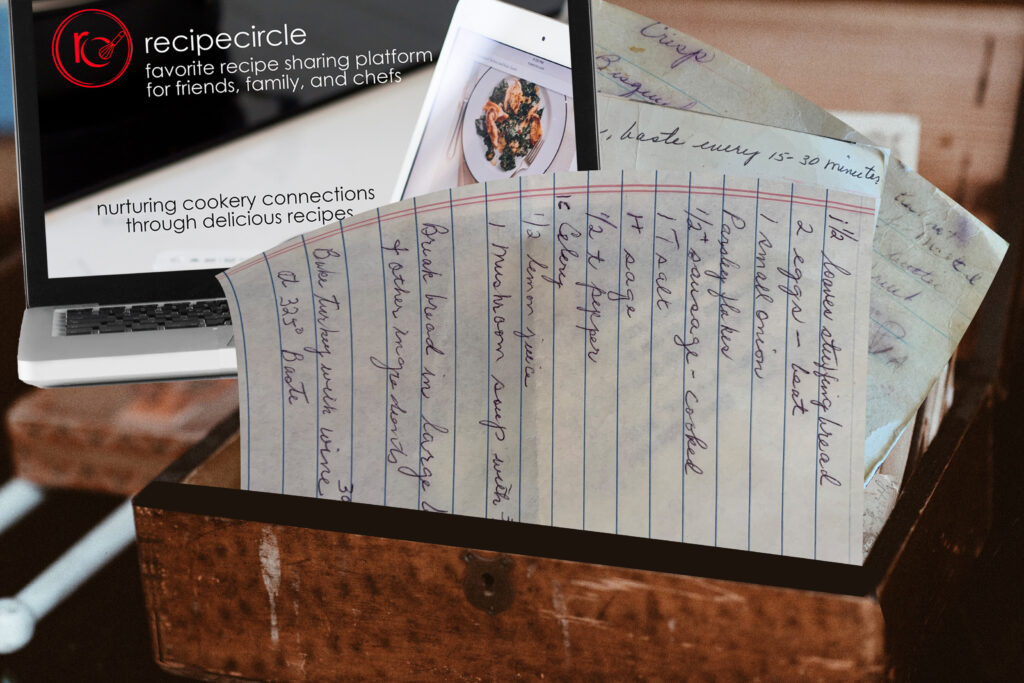 recipecircle
favorite recipe sharing platform
for friends, family, and chefs
nurturing cookery connections
through delicious recipes
Crisp
, baste every 15-30 minutes
1½ loaves stuffing bread
2 eggs – beat
1 small onion
Parsley flakes
1½ # sausage - cooked
1 T salt
1 t sage
½ t pepper
1c Celery
½ lemon juice
1 mushroom soup with
Break bread in large
& other ingredients
Bake turkey with wine 30
at 325° Baste